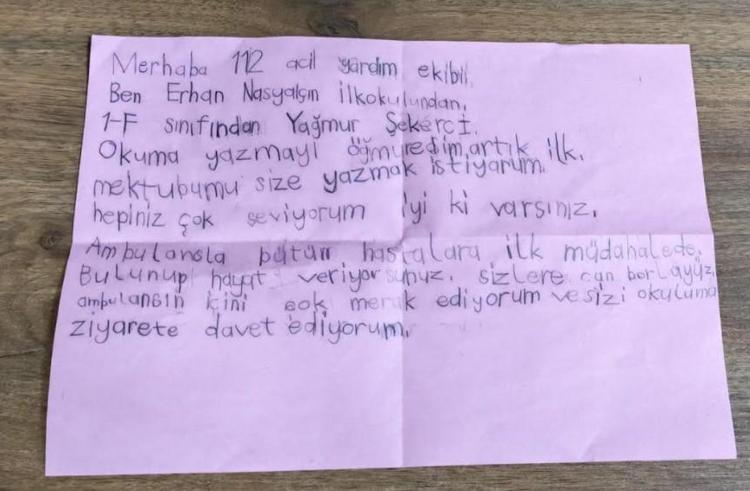 Merhaba 112 acil yardım ekibi!
Ben Erhan Nasyalçın İlkokulundan.
1-F sınıfından Yağmur Şekerci.
Okuma yazmayı öğmuredim, artık ilk.
mektubumu size yazmak istiyarum.
hepiniz çok seviyorum iyi ki varsınız.
Ambulansla bütün hastalara ilk müdahalede.
Bulunup hayat veriyorsunuz. sizlere can borluyuz.
ambulansın içini çok merak ediyorum ve sizi okuluma
ziyarete davet ediyorum.